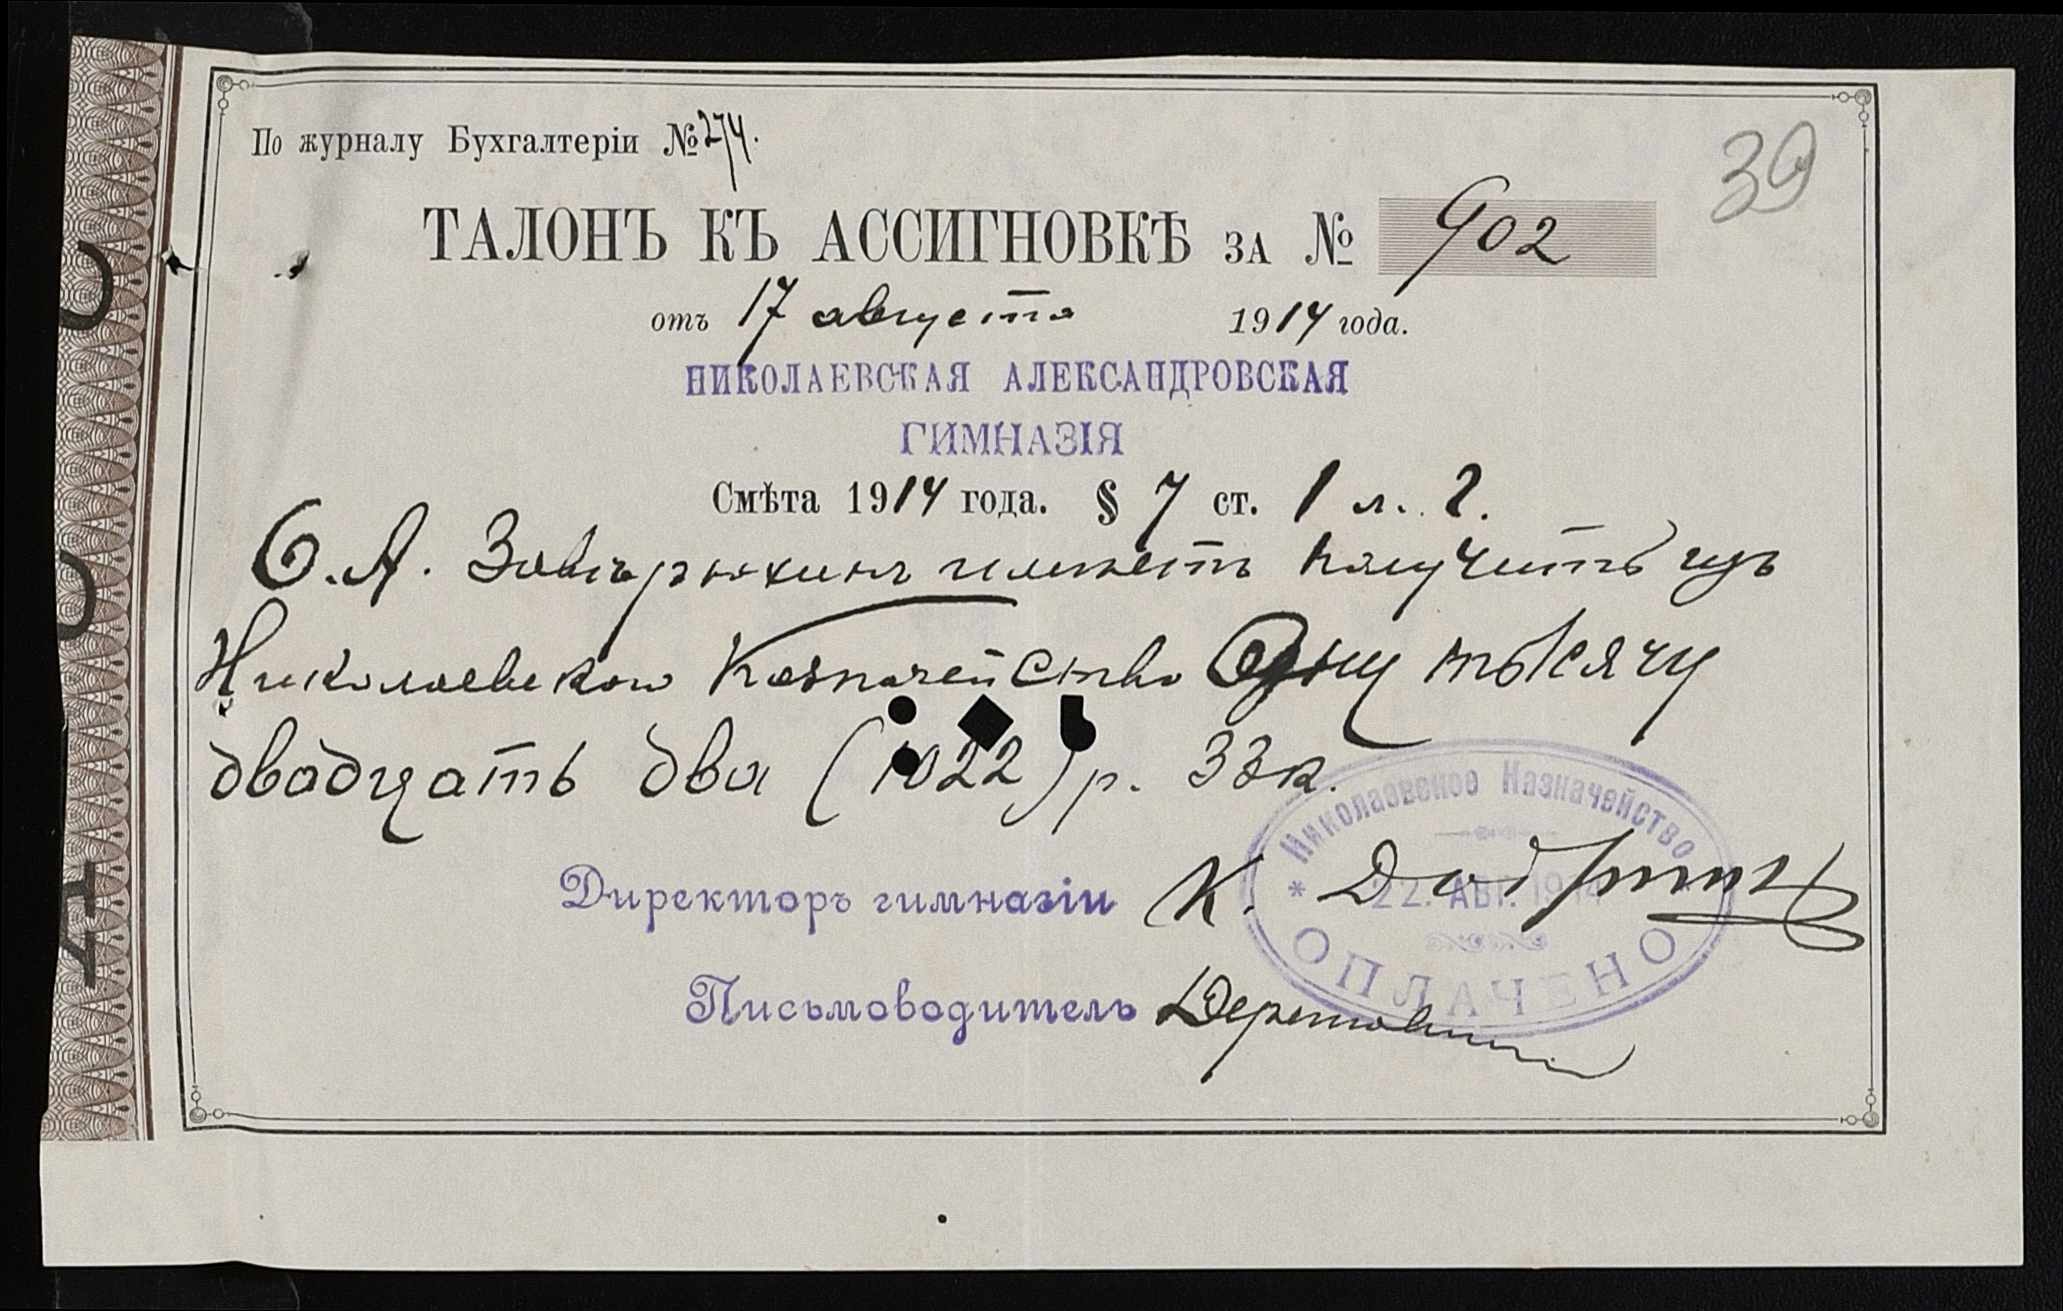 По журналу Бухгалтеріи № 274.
39
ТАЛОНЪ КЪ АССИГНОВКѢ ЗА № 902
отъ 17 августа 1914 года.
НИКОЛАЕВСКАЯ АЛЕКСАНДРОВСКАЯ
ГИМНАЗІЯ
Смѣта 1914 года. § 7 ст. 1 л. 2.
С. А. имѣетъ получить изъ
Николаевскаго Казначейства Одну тысячу
двадцать два (1022) р. 33 к.
Николаевское Казначейство
Директоръ гимназіи К.
* 22. АВГ. 1914
ОПЛАЧЕНО
Письмоводитель